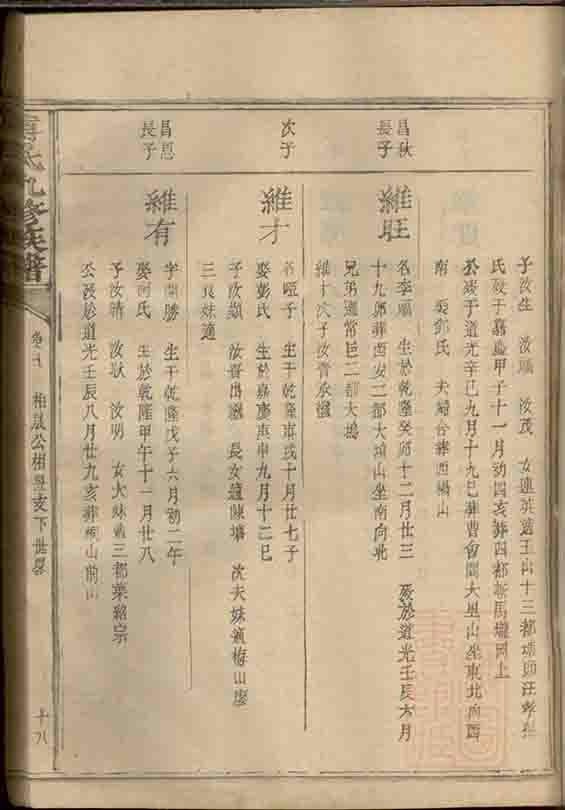 子汝生 汝鳳 汝茂 女連英適王山十三都
氏歿于嘉慶甲子十一月初四亥葬四都
公歿于道光辛巳九月十九巳葬曹會關大里山坐東北向西
南 娶鄧氏 夫婦合葬西陽山
昌秋長子
維旺
名李鳳 生於乾隆癸卯十二月廿三 歿於道光壬辰六月
十九卯葬西安二都大塘山坐南向北
兄弟適常巨二都大塢
維才次子汝賢承繼
次子
維才
名啞子 生于乾隆庚戌十月廿七子
娶彭氏 生於嘉慶庚申九月十二巳
子汝顯 汝賢出繼 長女適陳 次夫妹適梅山廖
三良妹適
昌恩長子
維有
字開勝 生于乾隆戊子六月初二午
娶 氏 生於乾隆甲午十一月廿八
子汝清 汝耿 汝明 女大妹適三都葉紹宗
公歿於道光壬辰八月廿九亥葬 山前山
氏九修族譜
卷 柏晟公相 支下世畧
十八